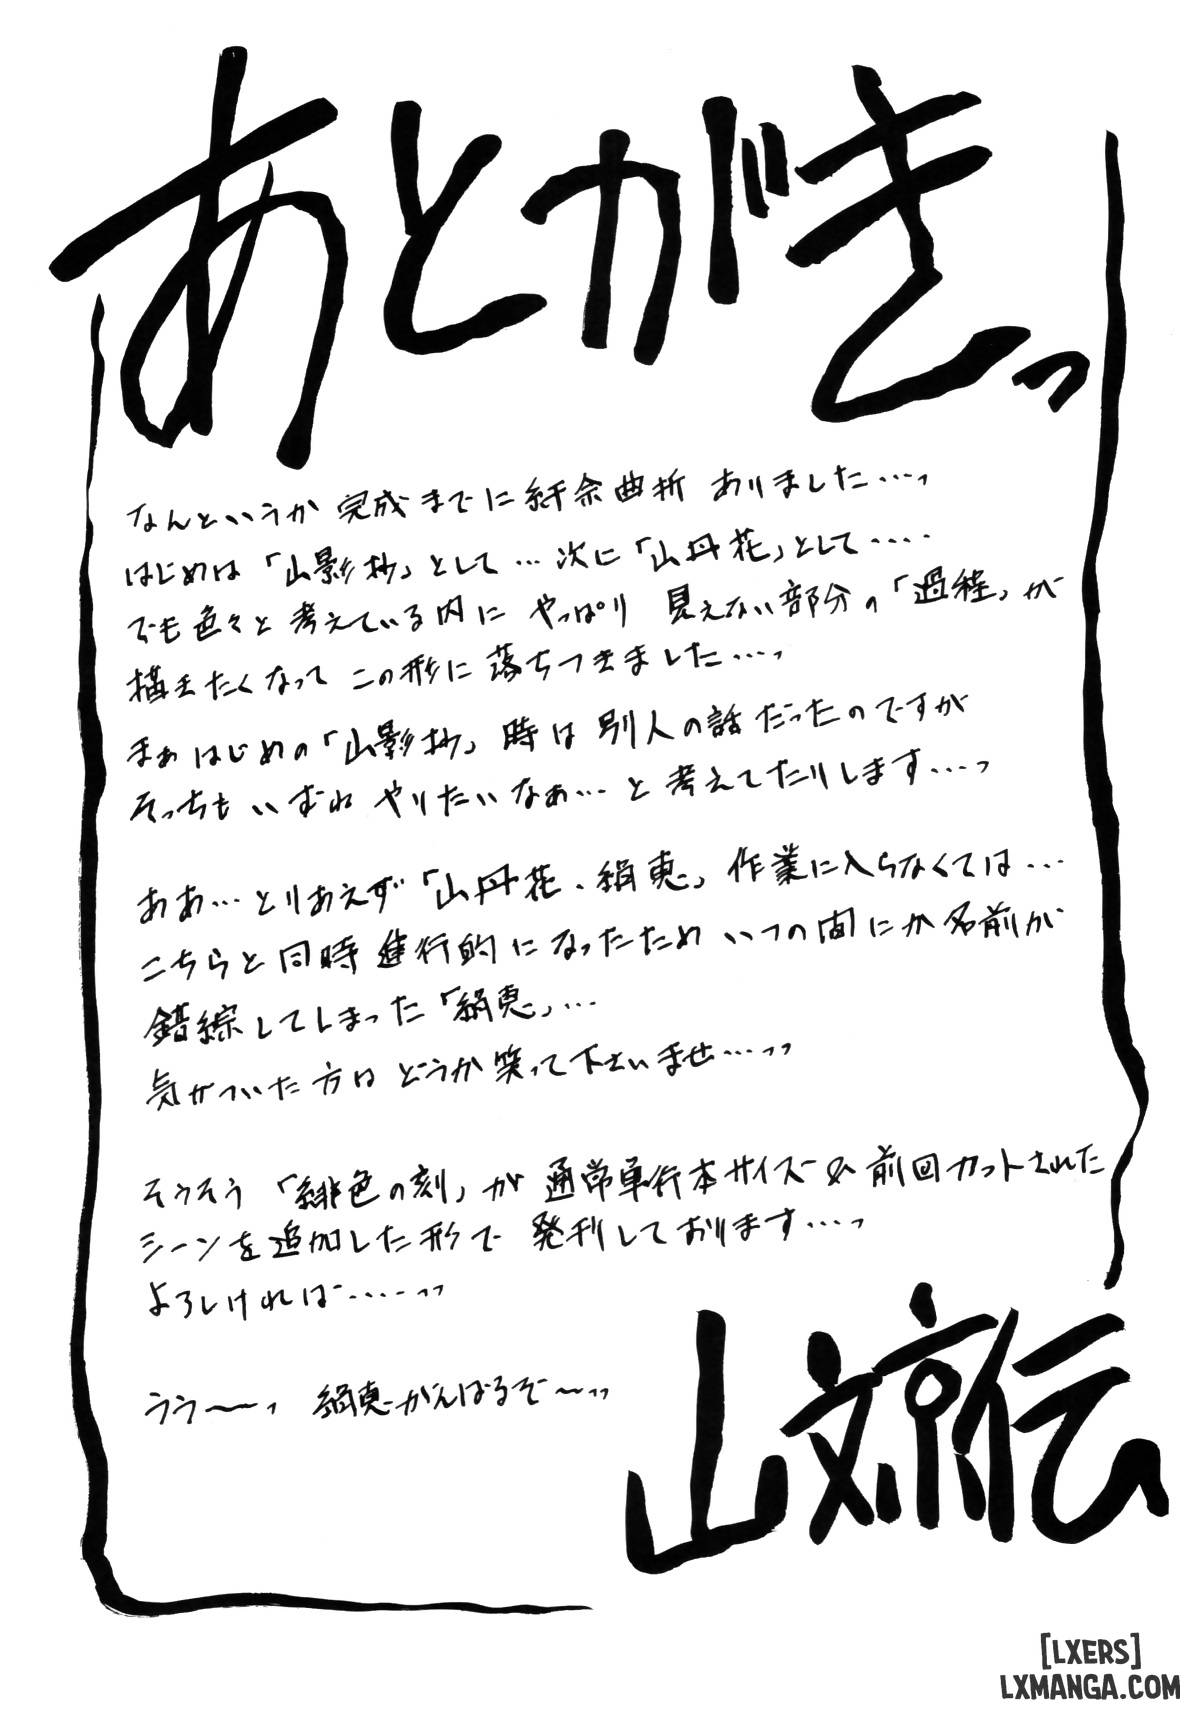 あとがきっ
なんというか 完成までに紆余曲折 ありました…っ
はじめは「山影抄」として…次に「山丹花」として‥‥
でも色々と考えている内に やっぱり 見えない部分の「過程」が
描きたくなって この形に落ちつきました…っ
まぁはじめの「山影抄」時は別人の話だったのですが
そっちもいずれ やりたいなぁ…と考えてたりします…っ
ああ…とりあえず「山丹花、絹恵」作業に入らなくては…
こちらと同時進行的になったため いつの間にか名前が
錯綜してしまった「絹恵」…
気がついた方は どうか笑って下さいませ…っっ
そうそう「緋色の刻」が 通常単行本サイズ& 前回カットされた
シーンを追加した形で 発刊しております…っ
よろしければ‥‥っっ
うう〜〜っ 絹恵がんばるぞ〜っっ
山文京伝
[LXERS]
LXMANGA.COM